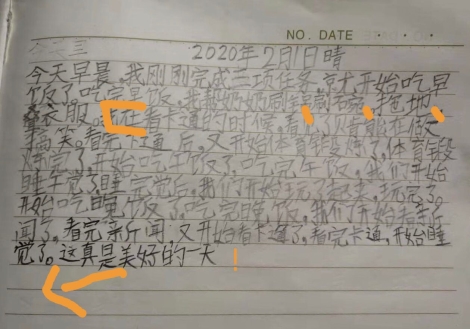 NO. DATE
2020年2月1日晴
今天早晨,我刚刚完成三项任务,就开始吃早
饭了。吃完早饭,我帮奶奶刷
衣服。我在看卡通的时候,看
搞笑。看完卡通后,又开始体育锻炼了,体育锻
炼完了,开始吃午饭了。吃完午饭,我们开始
睡午觉了。睡完觉后,我们开始玩了起来,玩完了,
开始吃晚饭了。吃完晚饭,我们开始看新
闻了。看完新闻,又开始看卡通了。看完卡通,开始睡
觉了。这真是美好的一天!